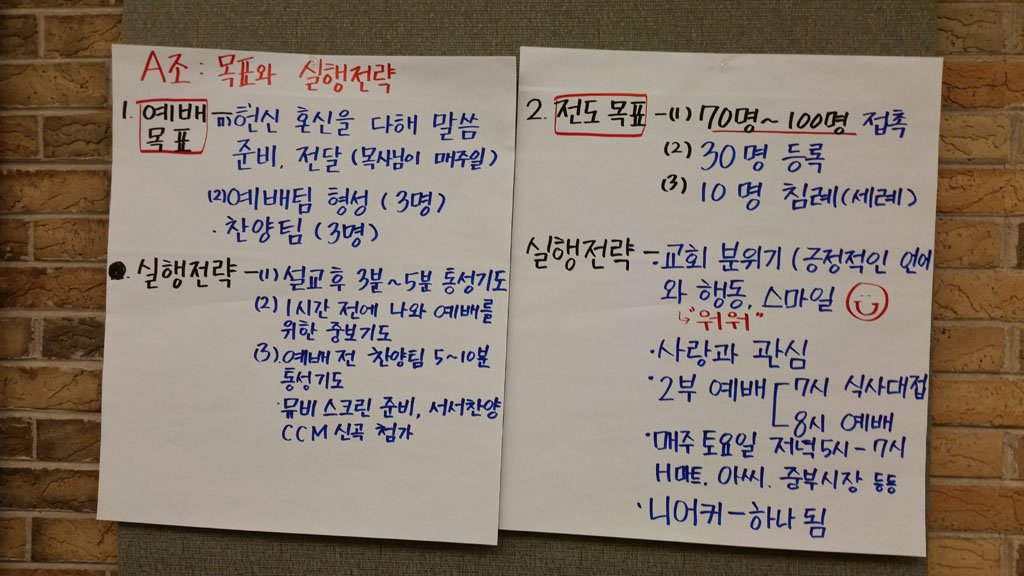 A조: 목표와 실행전략
1. 예배 목표 - (1) 헌신 혼신을 다해 말씀
준비, 전달 (목사님이 매주일)
(2) 예배팀 형성 (3명)
· 찬양팀 (3명)
· 실행전략 - (1) 설교 후 3분~5분 통성기도
(2) 1시간 전에 나와 예배를
위한 중보기도
(3). 예배 전 찬양팀 5~10분
통성기도
· 뮤비 스크린 준비, 서서찬양
CCM 신곡 첨가
2. 전도 목표 - (1) 70명~100명 접촉
(2) 30명 등록
(3) 10명 침례(세례)
실행전략 - · 교회 분위기 (긍정적인 언어
와 행동, 스마일
↳ "워워"
· 사랑과 관심
· 2부 예배 7시 식사대접
8시 예배
· 매주 토요일 저녁 5시-7시
H마트, 아씨, 중부시장 등등
· 니어커 - 하나 됨